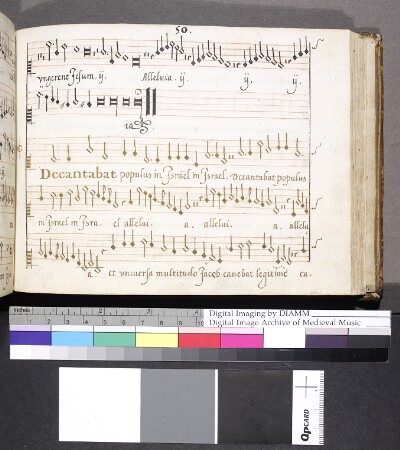 50.
vngerent Jesum. ij. Alleluia. ij. ij. ij.
ia.
Decantabat populus in Jsrael in Jsrael. Decantabat populus
in Jsrael in Jsra. el allelui. a. allelui. a. allelu
a. et vniuersa multitudo Jacob canebat legitime ca.
Digital Imaging by DIAMM
Digital Image Archive of Medieval Music
inches
1 2 3 4 5 6 7 8 9 10
QPCARD